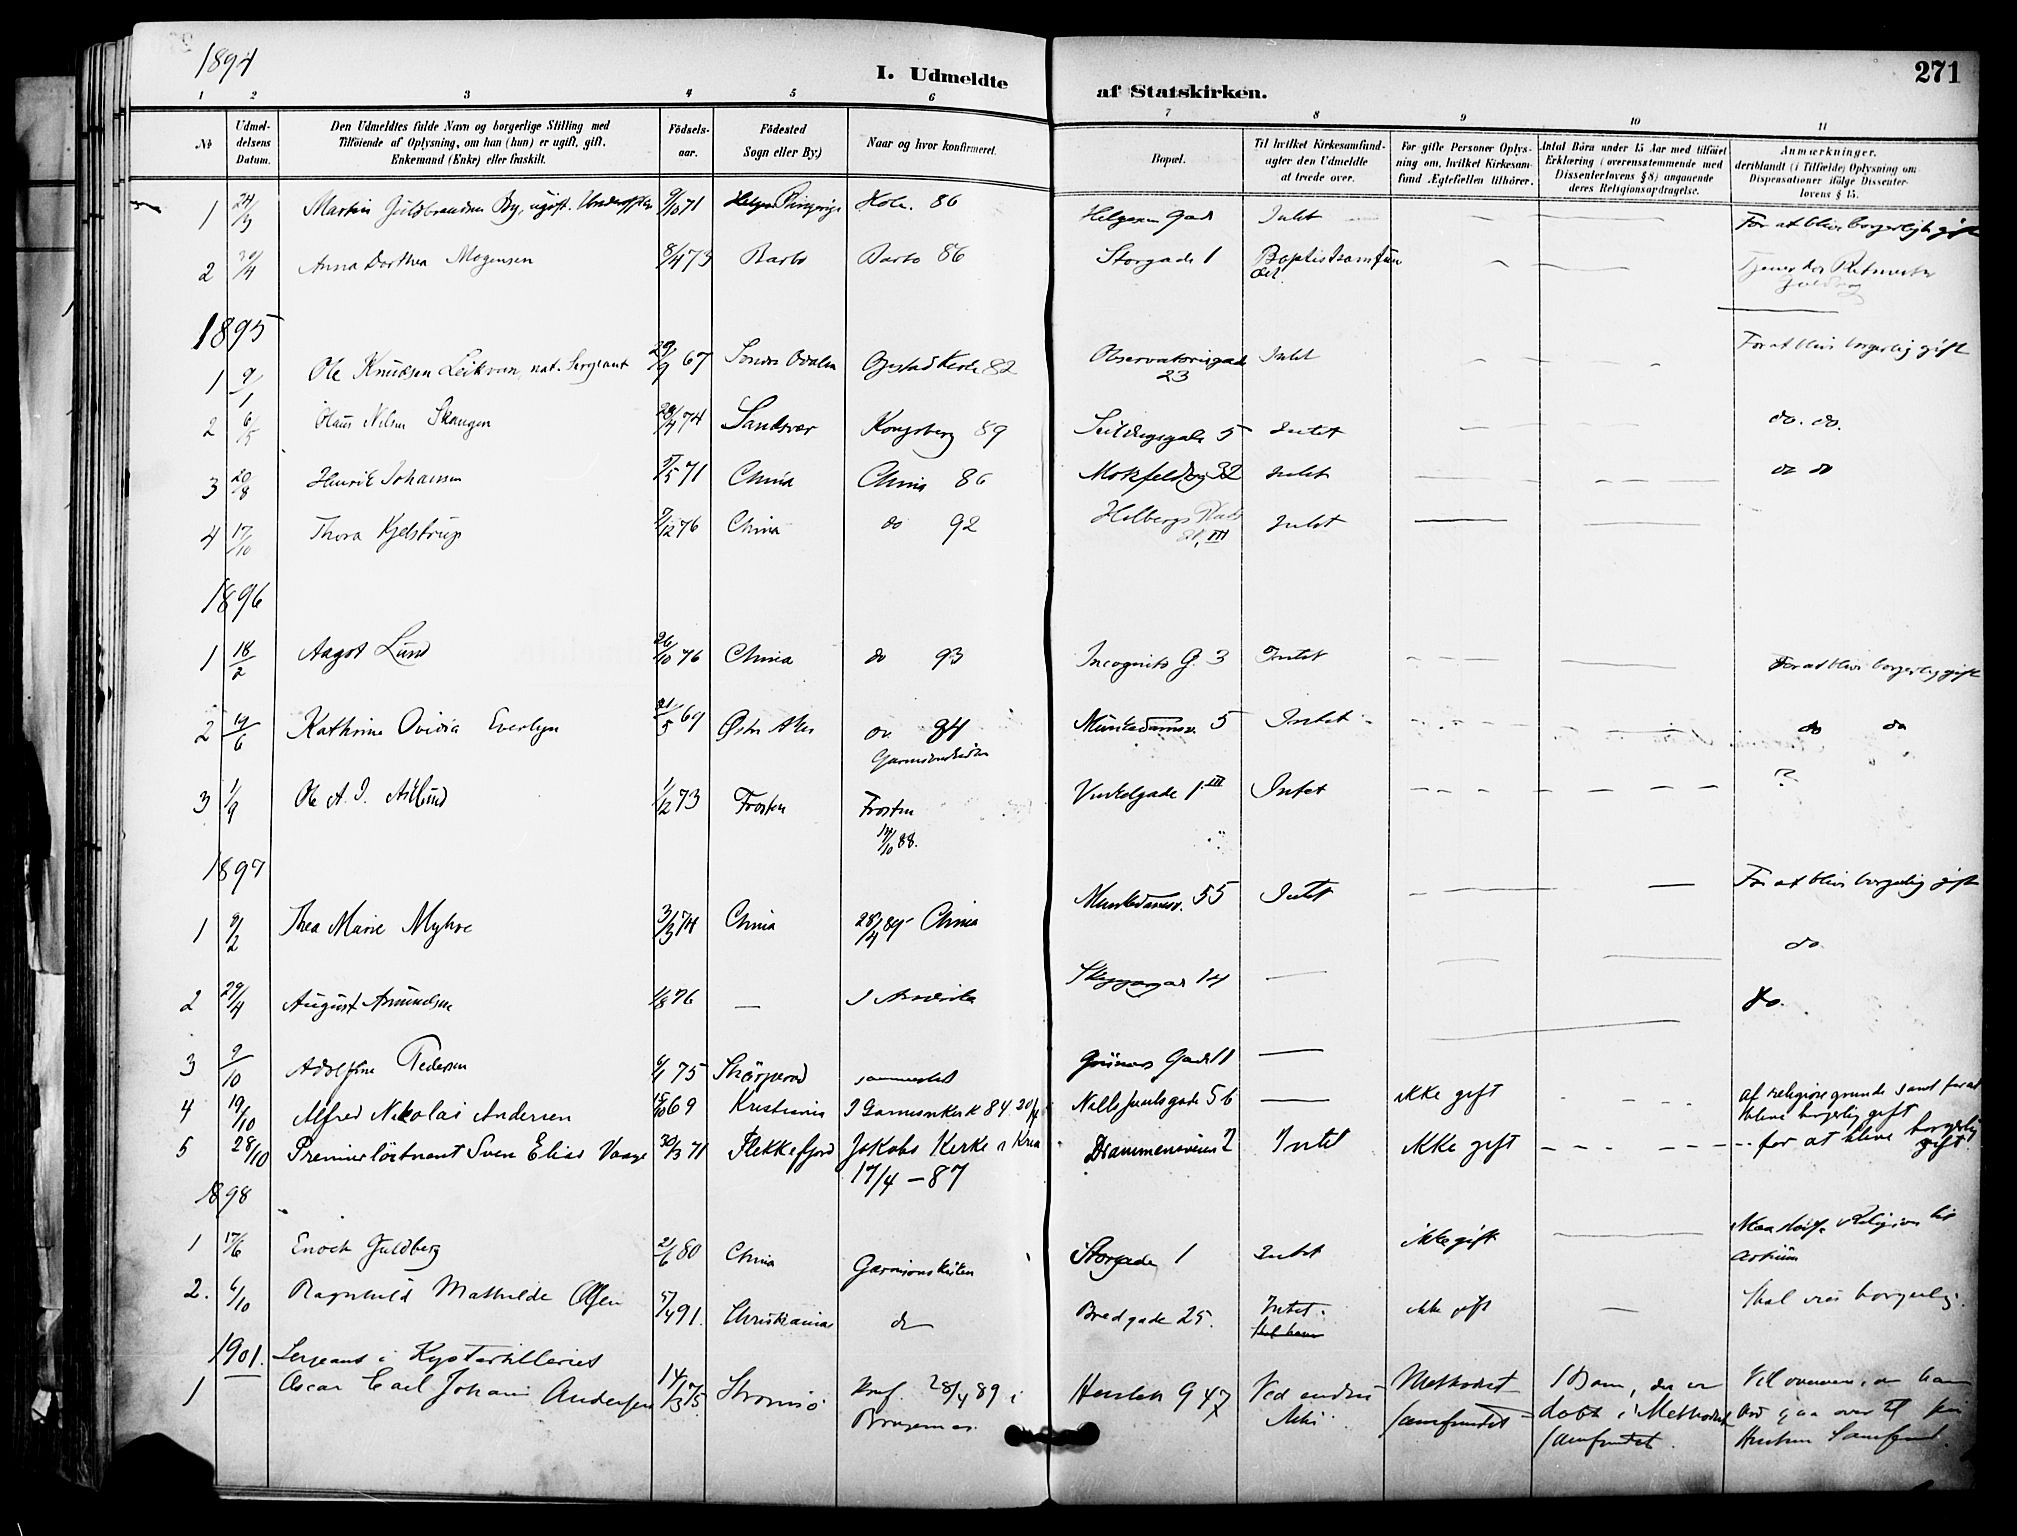 1894
I. Udmeldte
af Statskirken.
271
1 2 3 4 5 6 7 8 9 10 11
No
Udmel-
delsens
Datum.
Den Udmeldtes fulde Navn og borgerlige Stilling med
Tilføiende af Oplysning, om han (hun) er ugift, gift,
Enkemand (Enke) eller fraskilt.
Födsels-
aar.
Födested
Sogn eller By.)
Naar og hvor konfirmeret.
Bopæl.
Til hvilket Kirkesamfund
agter den Udmeldte
at træde over.
For gifte Personer Oplys-
ning om, hvilket Kirkesam-
fund Ægtefællen tilhörer.
Antal Börn under 15 Aar med tilföiet
Erklæring (overensstemmende med
Dissenterlovens § 8) angaaende
deres Religionsopdragelse.
Anmærkninger,
deriblandt (i Tilfælde) Oplysning om
Dispensationer ifölge Dissenter-
lovens § 15.
1 24/9 Martin Guldbrandsen By, ugift. 9/10 71 Hole. 86 Helgesens Gade Intet For at blive borgerlig gift
2 30/4 Anna Dorthea Mogensen 8/4 73 Barbo Barbo 86 Storgade 1 Baptistsamfun
det
1895
1 9/1 Ole Knudsen nat. Sergeant 29/9 67 Söndre Odalen 82 Observatoriegade Intet For at blive borgerlig gift
23
2 6/5 Olaus Nilsen Skaugen 28/4 74 Sandsvær Kongsberg 89 5 Intet do. do.
3 20/8 Henrik Johansen 5/5 71 Chria Chria 86 32 Intet do do
4 17/10 Thora Kjelstrup 2/12 76 Chria do 92 Holbergs Plads Intet
III
1896
1 18/2 Aagot Lund 26/10 76 Chria do 93 Incognito G. 3 Intet For at blive borgerlig gift
2 19/6 Kathrine Ovidia Everlyn 21/5 69 Östre Aker do. 84 Munkedamsv. 5 Intet do do
Garnisonskirken
3 1/9 Ole A. J. Aslund 1/12 73 Frosten Frosten Vinkelgade 1 III Intet ?
14/10 88.
1897
1 9/2 Thea Marie Myhre 3/3 74 Chria 28/4 89 Chria Munkedamsv. 55 Intet For at blive borgerlig gift
do
2 29/4 August Amundsen 1/8 76 — I Amerika 14 — do.
3 9/10 Adolfine Pedersen 6/1 75 sammested Grüners Gade 11 —
4 19/10 Alfred Nikolai Andersen 15/10 69 Kristiania I Garnisonkirk 84 Nills Juulsgade 56 — ikke gift af religiøse grunde samt for at
blive borgerlig gift
5 28/10 Premierlöitnant Sven Elias Vaage 30/3 71 Flekkefjord Jakobs Kirke i Kria Drammensveien 2 Intet ikke gift for at blive borgerlig
gift.
17/4 – 87
1898
1 17/6 Enoch Guldberg 21/6 80 Chria Garnisonskirken Storgaden 1 Intet ikke gift
2. 6/10 Ragnhild Mathilde Olsen Christiania do Bredgade 25. Intet. ikke gift — Skal vies borgerlig.
1901. Sergeant i Kystartilleriet
1 Oscar Carl Johan Andersen 14/3 75 Strömsö Konf. 28/4 89 i G 47 Ved Methodist 1 Barn, der er
Bragernes. samfundet döbt i Methodist
samfundet. gaa over til sin
Hustrus Samfund.